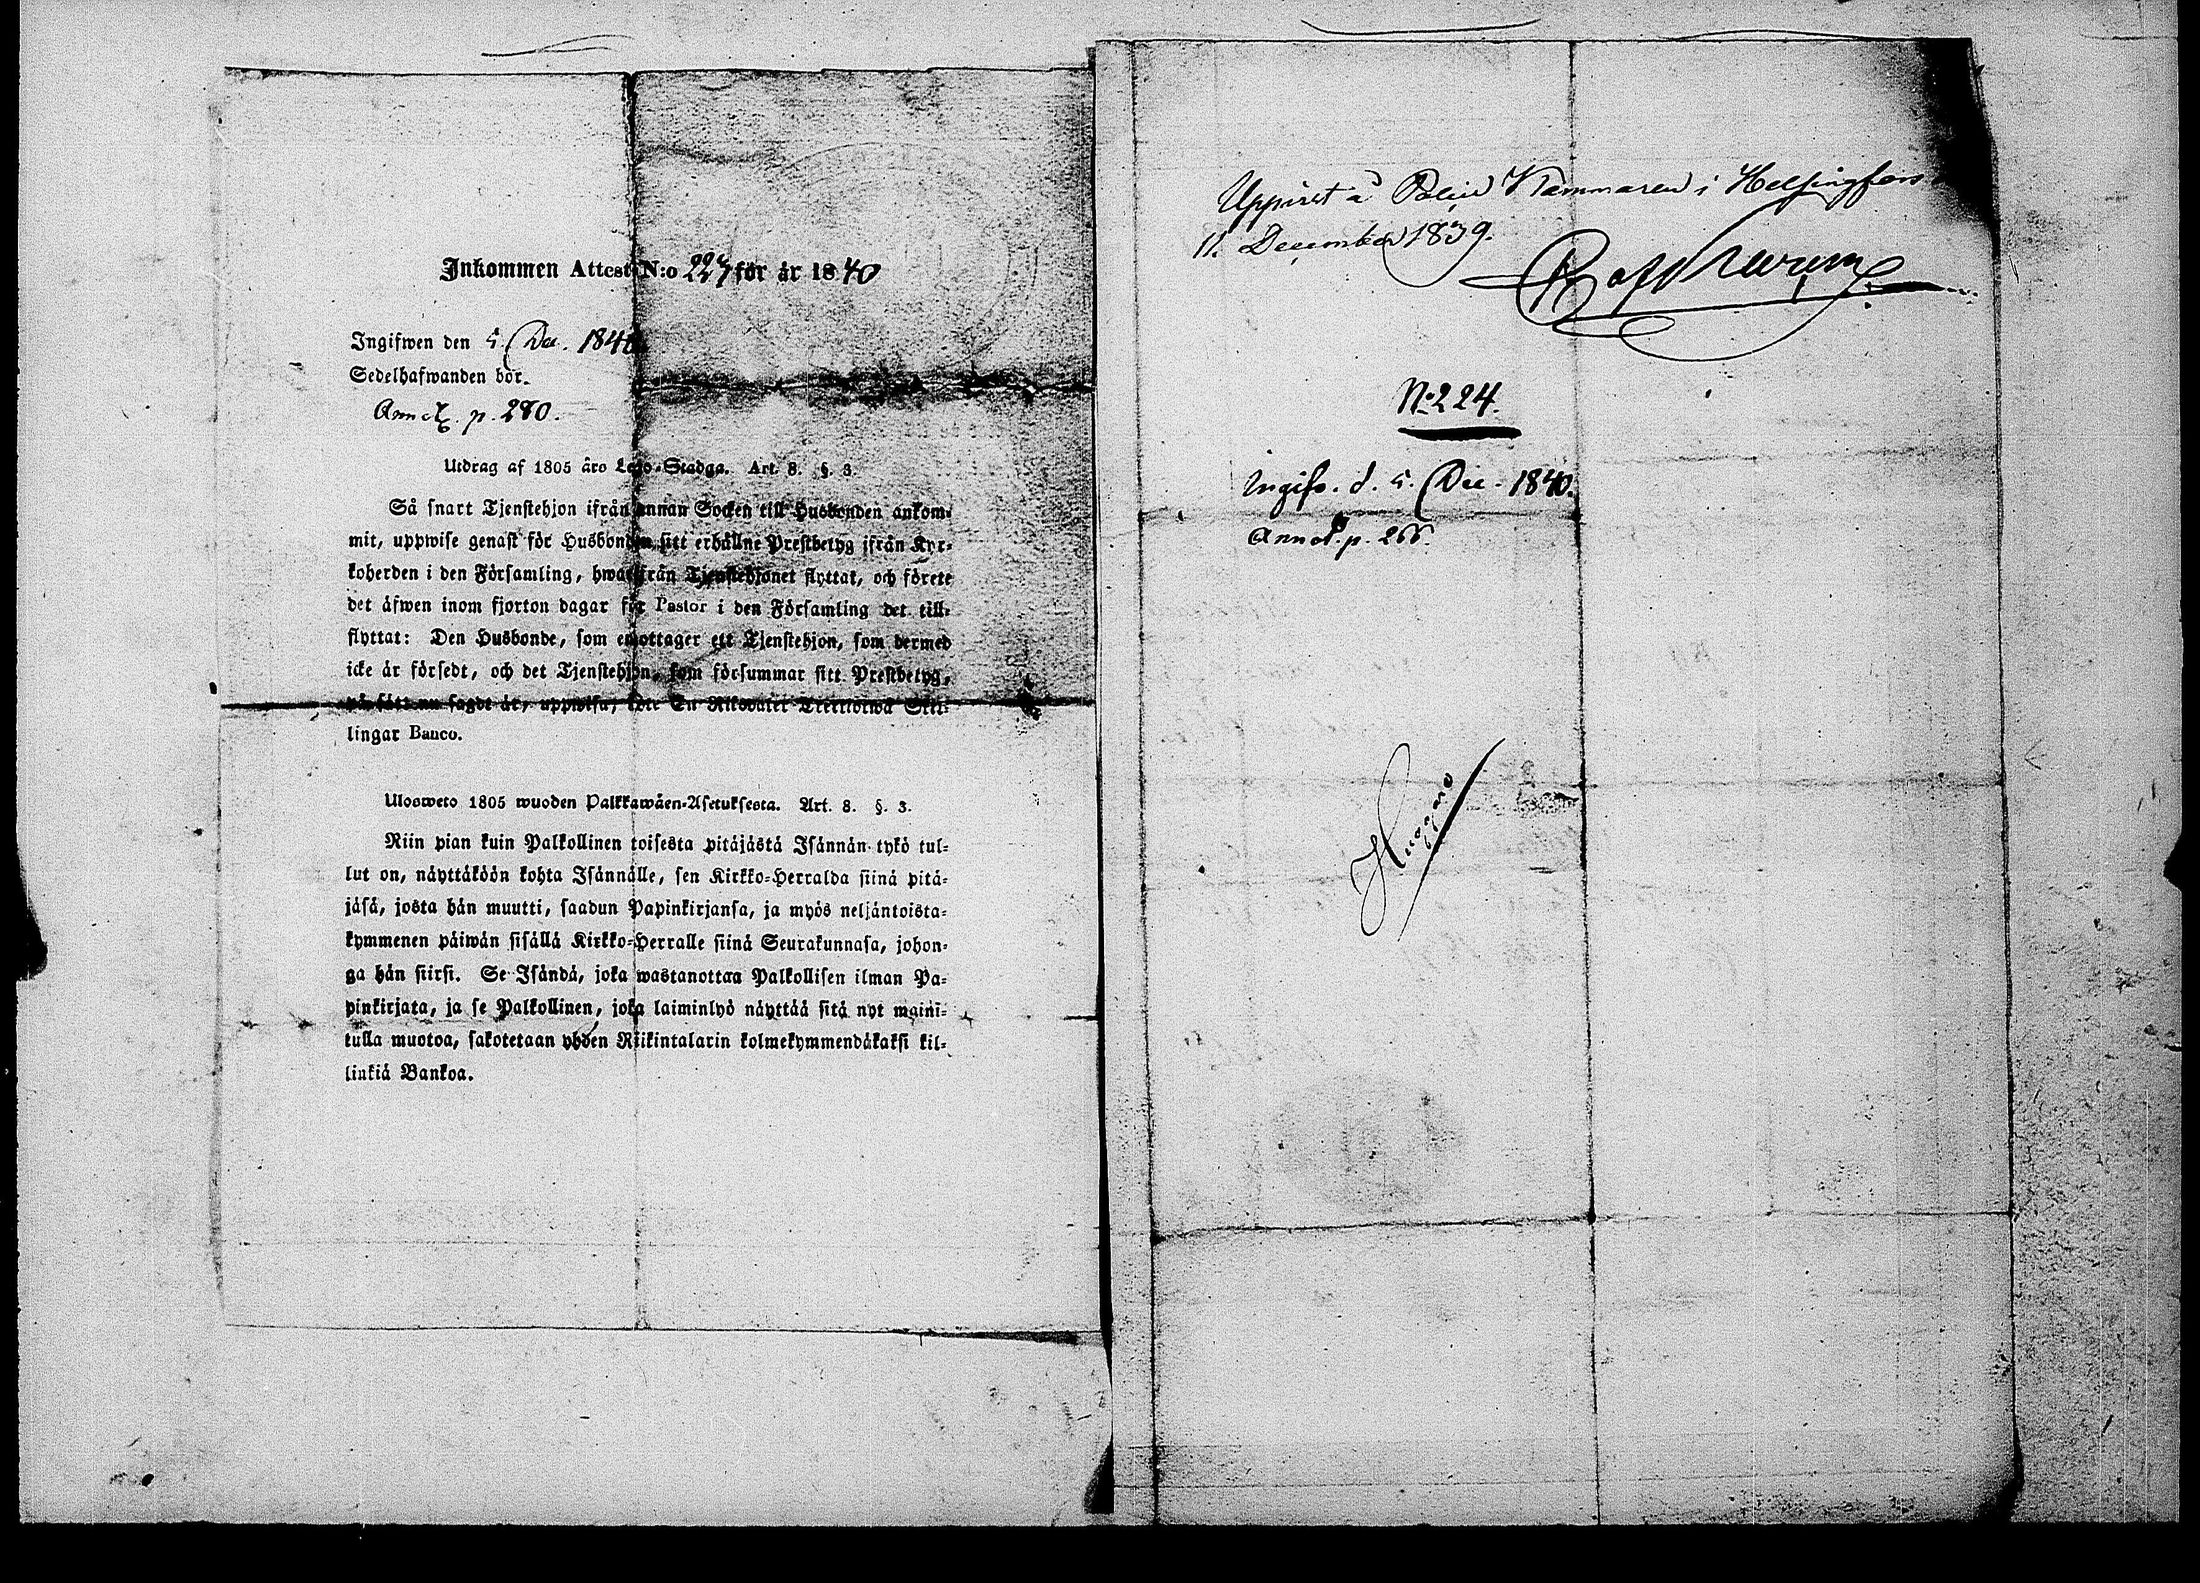 Inkommen Attest N:o 223 för år 1840
Ingifwen den 5. Dec. 1840
Sedelhafwanden bör.
Annot. p. 280.
Utdrag af 1805 års Lego-Stadga. Art. 8. §. 3.
Så snart Tjenstehjon ifrån annan Socken till Husbonden ankom-
mit, uppwise genast för Husbonden sitt erhållne Prestbetyg ifrån Kyr-
koherden i den Församling, hwarifrån Tjenstehjonet flyttat, och förete
det äfwen inom fjorton dagar för Pastor i den Församling det till-
flyttat: Den Husbonde, som emottager ett Tjenstehjon, som dermed
icke är försedt, och det Tjenstehjon, som försummar sitt Prestbetyg,
på sätt nu sagdt är, uppwisa, böte En Riksdaler Trettiotwå Skil-
lingar Banco.
Ulosweto 1805 wuoden Palkkawäen-Asetuksesta. Art. 8. §. 3.
Niin pian kuin Palkollinen toisesta pitäjästä Isännän tykö tul-
lut on, näyttäköön kohta Isännälle, sen Kirkko-Herralda siinä pitä-
jäsä, josta hän muutti, saadun Papinkirjansa, ja myös neljäntoista-
kymmenen päiwän sisällä Kirkko-Herralle siinä Seurakunnasa, johon-
ga hän siirsi. Se Isändä, joka wastanottaa Palkollisen ilman Pa-
pinkirjata, ja se Palkollinen, joka laiminlyö näyttää sitä nyt maini-
tulla muotoa, sakotetaan yhden Riikintalarin kolmekymmendäkaksi kil-
linkiä Bankoa.
Uppvist å Police Kammaren i Helsingfors
11. December 1839.
N:o 224.
Ingifv. d. 5. Dec. 1840.
Annot. p. 266.